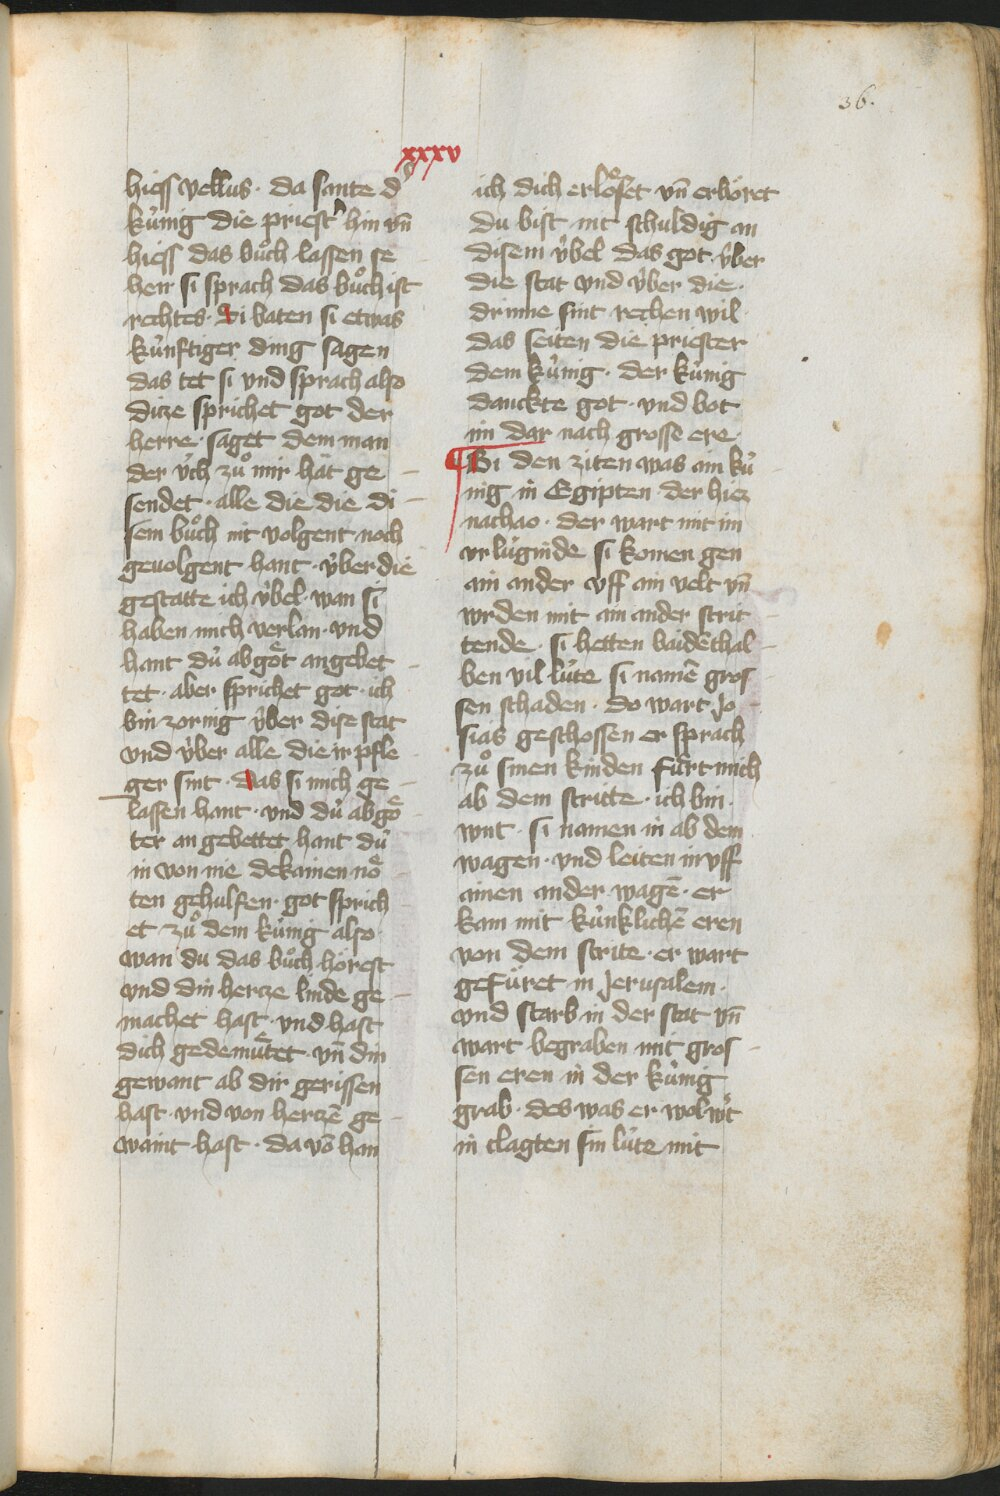 36.
xxxv
hiess vellus · da sante d᾽
kúnig die priest᾽ hin vn̄
hiess das bůch lassen se
hen si sprach das bůch ist
rechtes · Si baten si etwas
kúnftiger ding sagen
das tet si vnd sprach also
dize sprichet got der
herre · saget dem man
der v́ch zů mir hàt ge
sendet · alle die die di
sem bůch nit volgent noch
geuolgent hant · v́ber die
gestatte ich v́bel · wan si
haben mich verlan · vnd
hant dú abgoͤt angebet
tet · aber sprichet got · ich
bin zornig v́ber dise stat
vnd v́ber alle die ir pfle
ger sint · das si mich ge
lassen hant · vnd dú abgoͤ
ter an gebettet hant dú
in von nie dekainen noͤ
ten gehulfen · got sprich
et zů dem kúnig also
wan du das bůch hörest
vnd din hertze linde ge
machet hast · vnd hast
dich gedemuͤtet · vn̄ din
gewant ab dir gerissen
hast · vnd von hertzē ge
waint hast · da vō han
ich dich erloͤset vn̄ erhöret
du bist nit schuldig an
disem v́bel das got v́ber
die stat vnd v́ber die ·
dr inne sint rechen wil ·
das seiten die priester
dem kúnig · der kúnig
danckte got · vnd bot
im dar nach grosse ere
Bi den ziten was ain kú
nig in Egipten · der hiez
nachao · der wart mit im
vrlúginde si komen gen
ain ander vff ain velt vn̄
wrden mit ain ander strit
tende · si hetten baidēthal
ben vil lúte si namē gros
sen schaden · do wart Jo
sias geschossen er sprach
zů sinen kinden fuͤrt mich
ab dem stritte · ich bin ·
wnt · si namen in ab dem
wagen · vnd leiten in vff
ainen ander wagē · er
kam mit kúnklichē eren
von dem strite · er wart
gefüret in Jerusalem ·
vnd starb in der stat vn̄
wart begraben mit gros
sen eren in der kúnig
grab · des was er wol wt᾽
in clagten sin lúte mit